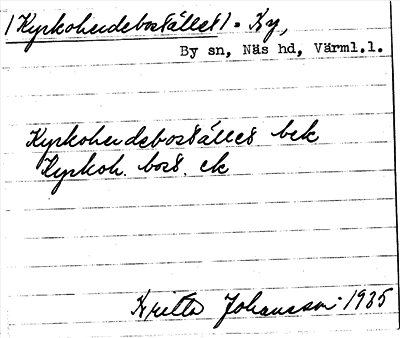 /Kyrkoherdebostället/ - Ky,
By sn, Näs hd, Värml.l.
Kyrkoherdebostället bek
Kyrkoh. bost. ek
Johansson 1935